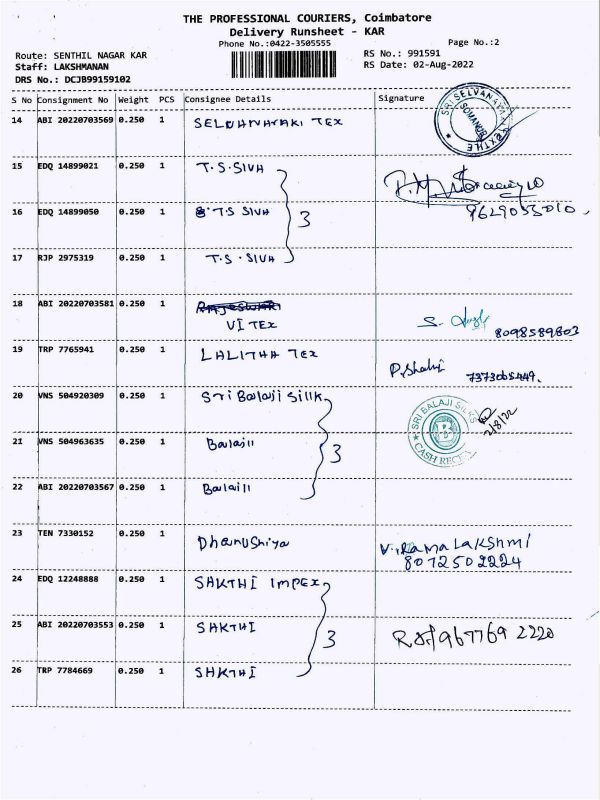 THE PROFESSIONAL COURIERS, Coimbatore
Delivery Runsheet - KAR
Phone No.:0422-3505555
Page No.:2
Route: SENTHIL NAGAR KAR
RS No.: 991591
Staff: LAKSHMANAN
RS Date: 02-Aug-2022
DRS No.: DCJB99159102
S No Consignment No Weight PCS Consignee Details Signature
14 ABI 20220703569 0.250 1 SELVANAYAKI TEX
SRI SELVANAYAKI TEXTILE
SOMANUR
15 EDQ 14899021 0.250 1 T.S.SIVA
16 EDQ 14899050 0.250 1 T.S SIVA 3 9629055010.
17 RJP 2975319 0.250 1 T.S.SIVA
18 ABI 20220703581 0.250 1 RAJESWARI
VI TEX
8098589803
19 TRP 7765941 0.250 1 LALITHA TEX P.Shahi 7373065449.
20 VNS 504920309 0.250 1 Sri Balaji Sillk
SRI BALAJI SILKS
CASH RECE
2/8/22
21 VNS 504963635 0.250 1 Balaji 3
22 ABI 20220703567 0.250 1 Balaji
23 TEN 7330152 0.250 1 Dhanushiya V.RAMALAKSHMI
8072502224
24 EDQ 12248888 0.250 1 SAKTHI IMPEX
25 ABI 20220703553 0.250 1 SAKTHI 3 967769 2220
26 TRP 7784669 0.250 1 SAKTHI